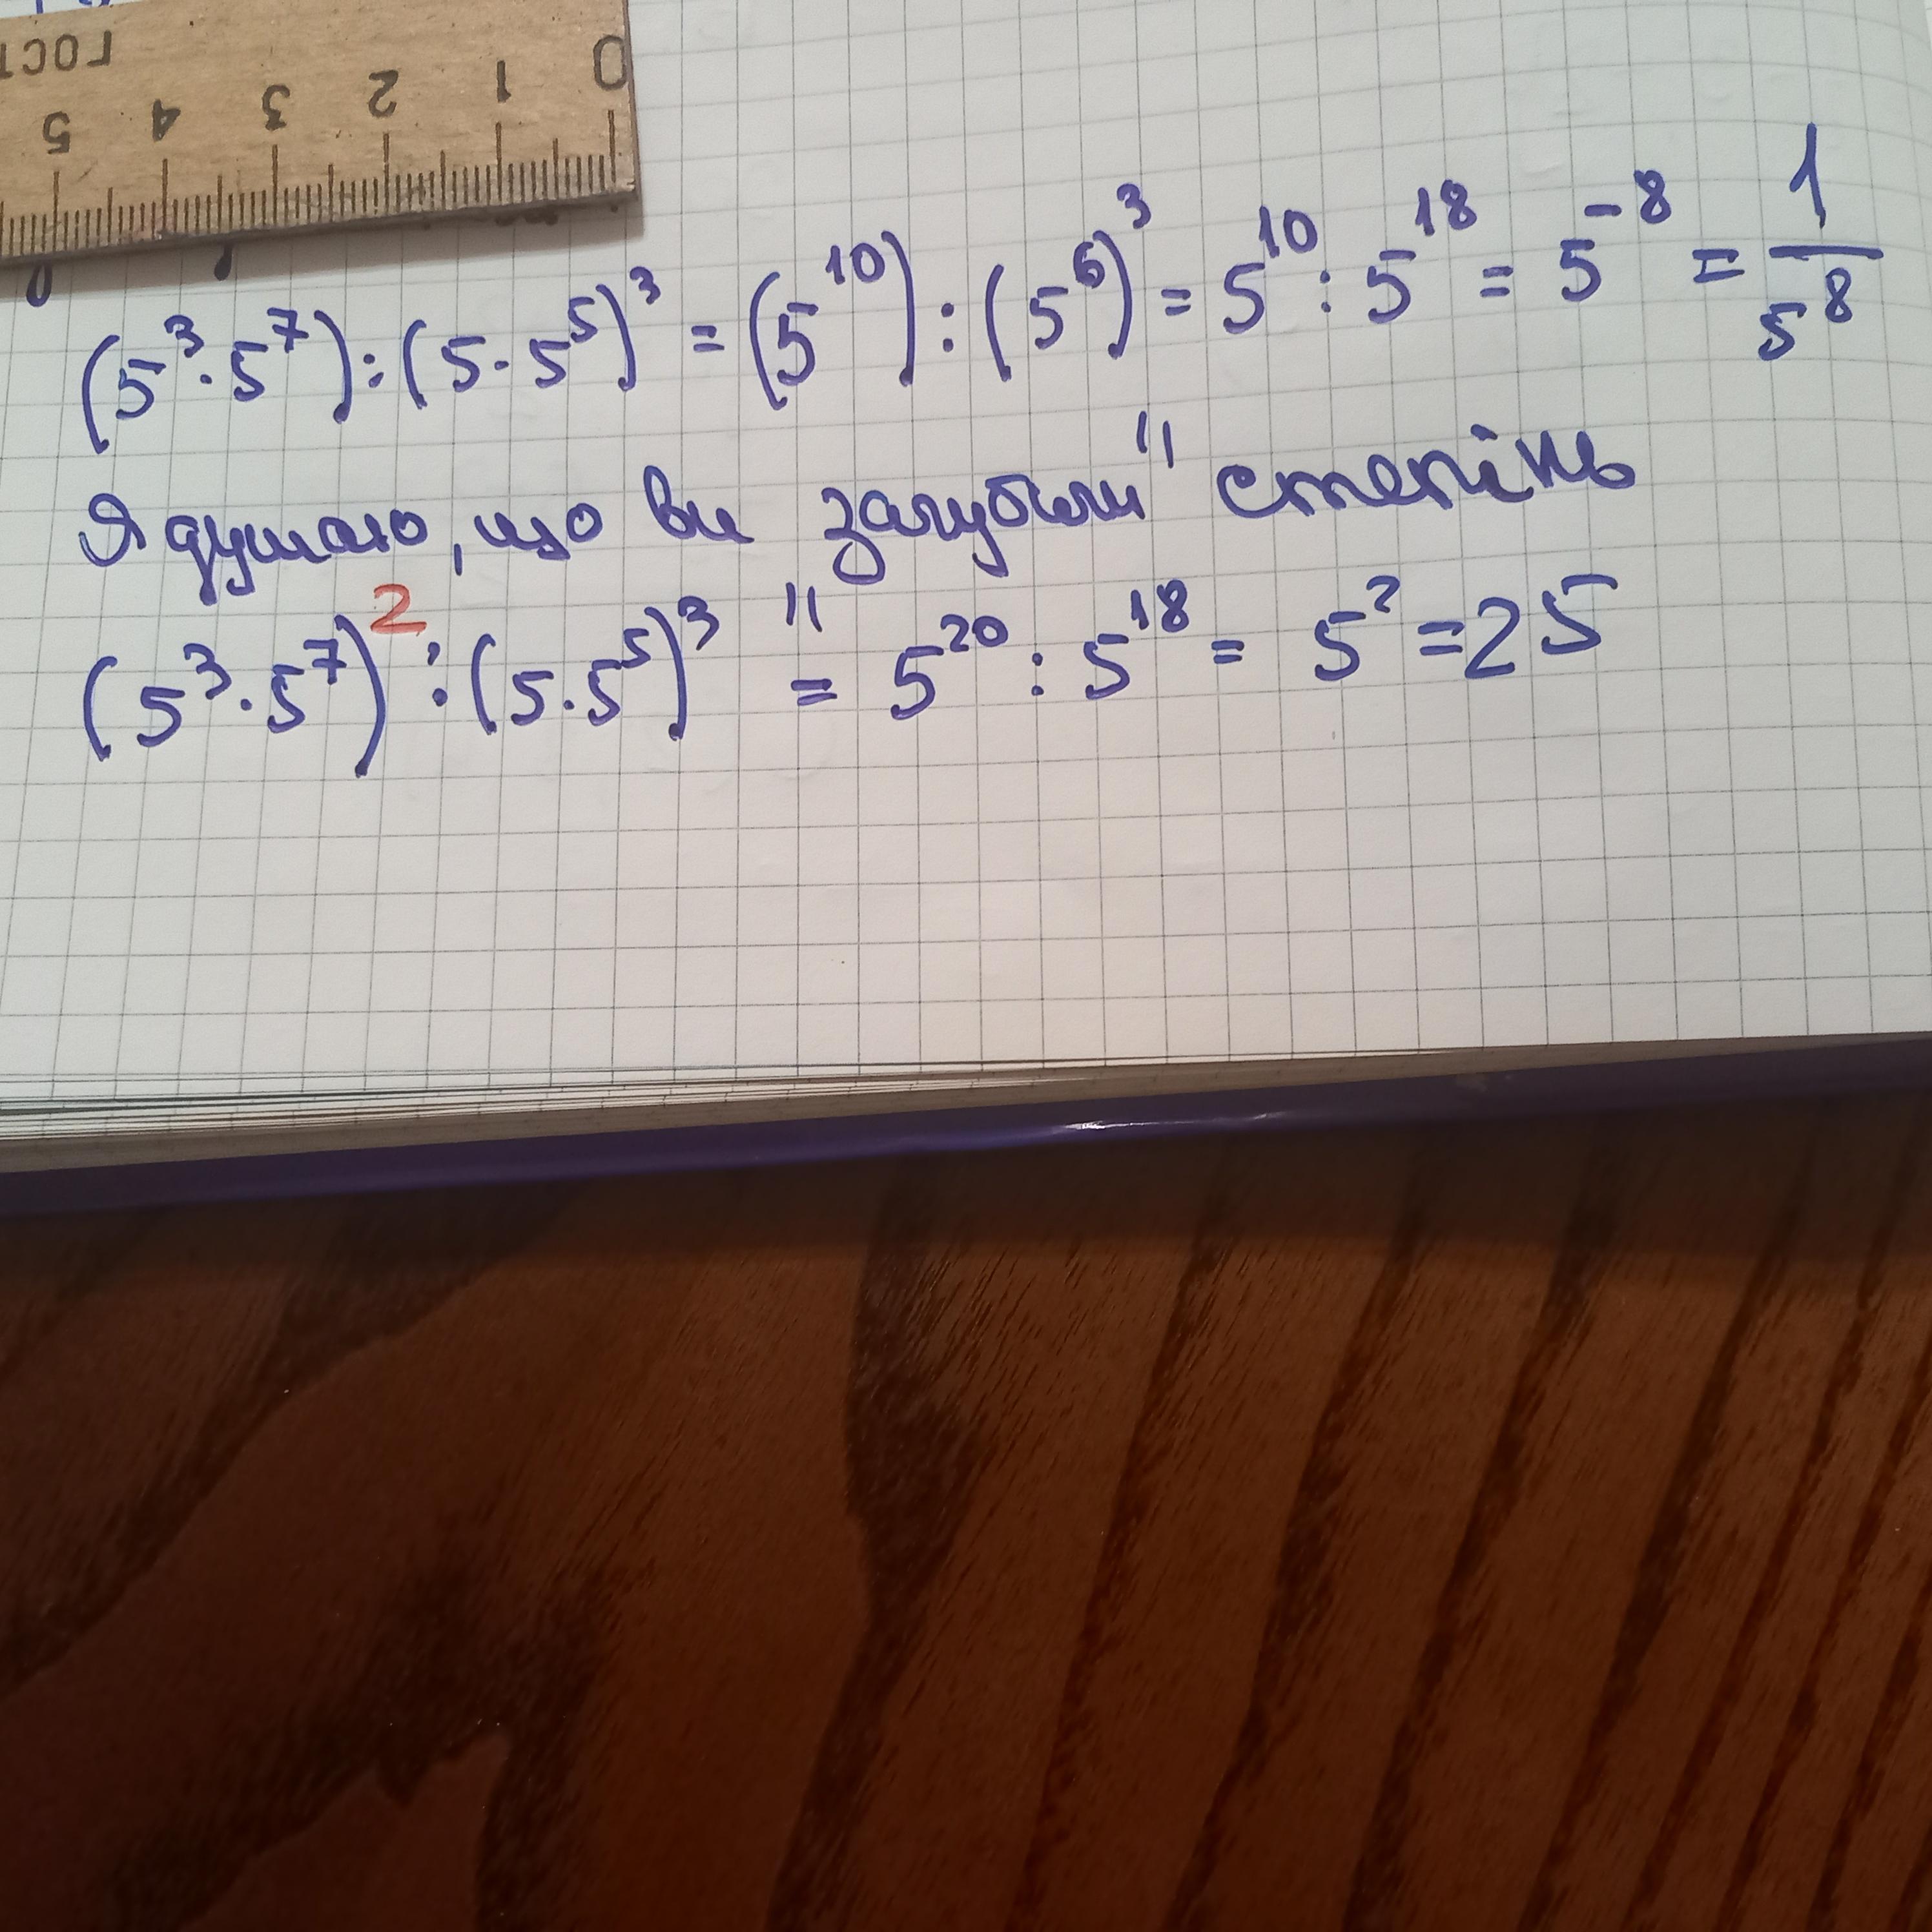 ГОСТ
0 1 2 3 4 5
(5³·5⁷):(5·5⁵)³=(5¹⁰):(5⁶)³=5¹⁰:5¹⁸=5⁻⁸=1/5⁸
Я думаю, що ви "загубили" степінь
(5³·5⁷)²:(5·5⁵)³=5²⁰:5¹⁸=5²=25